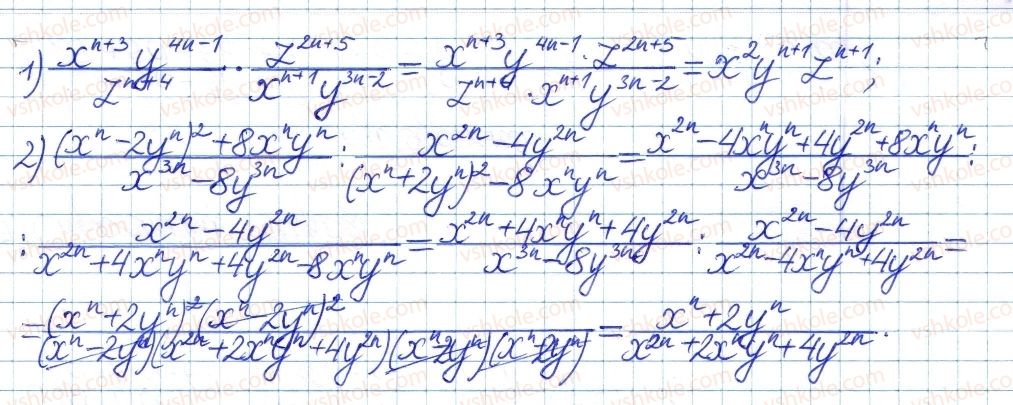 1) \frac{x^{n+3}y^{4n-1}}{z^{n+4}} \cdot \frac{z^{2n+5}}{x^{n+1}y^{3n-2}} = \frac{x^{n+3}y^{4n-1} \cdot z^{2n+5}}{z^{n+4} \cdot x^{n+1}y^{3n-2}} = x^2y^{n+1}z^{n+1};
2) \frac{(x^n-2y^n)^2+8x^ny^n}{x^{3n}-8y^{3n}} : \frac{x^{2n}-4y^{2n}}{(x^n+2y^n)^2-8x^ny^n} = \frac{x^{2n}-4x^ny^n+4y^{2n}+8x^ny^n}{x^{3n}-8y^{3n}} :
: \frac{x^{2n}-4y^{2n}}{x^{2n}+4x^ny^n+4y^{2n}-8x^ny^n} = \frac{x^{2n}+4x^ny^n+4y^{2n}}{x^{3n}-8y^{3n}} : \frac{x^{2n}-4y^{2n}}{x^{2n}-4x^ny^n+4y^{2n}} =
= \frac{(x^n+2y^n)^2(x^n-2y^n)^2}{(x^n-2y^n)(x^{2n}+2x^ny^n+4y^{2n})(x^n-2y^n)(x^n+2y^n)} = \frac{x^n+2y^n}{x^{2n}+2x^ny^n+4y^{2n}}.